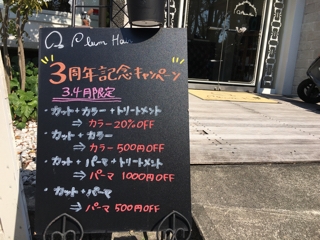 Plum Hair
3周年記念キャンペーン
3.4月限定
・カット+カラー+トリートメント
⇒ カラー20%OFF
・カット+カラー
⇒ カラー500円OFF
・カット+パーマ+トリートメント
⇒ パーマ1000円OFF
・カット+パーマ
⇒ パーマ500円OFF